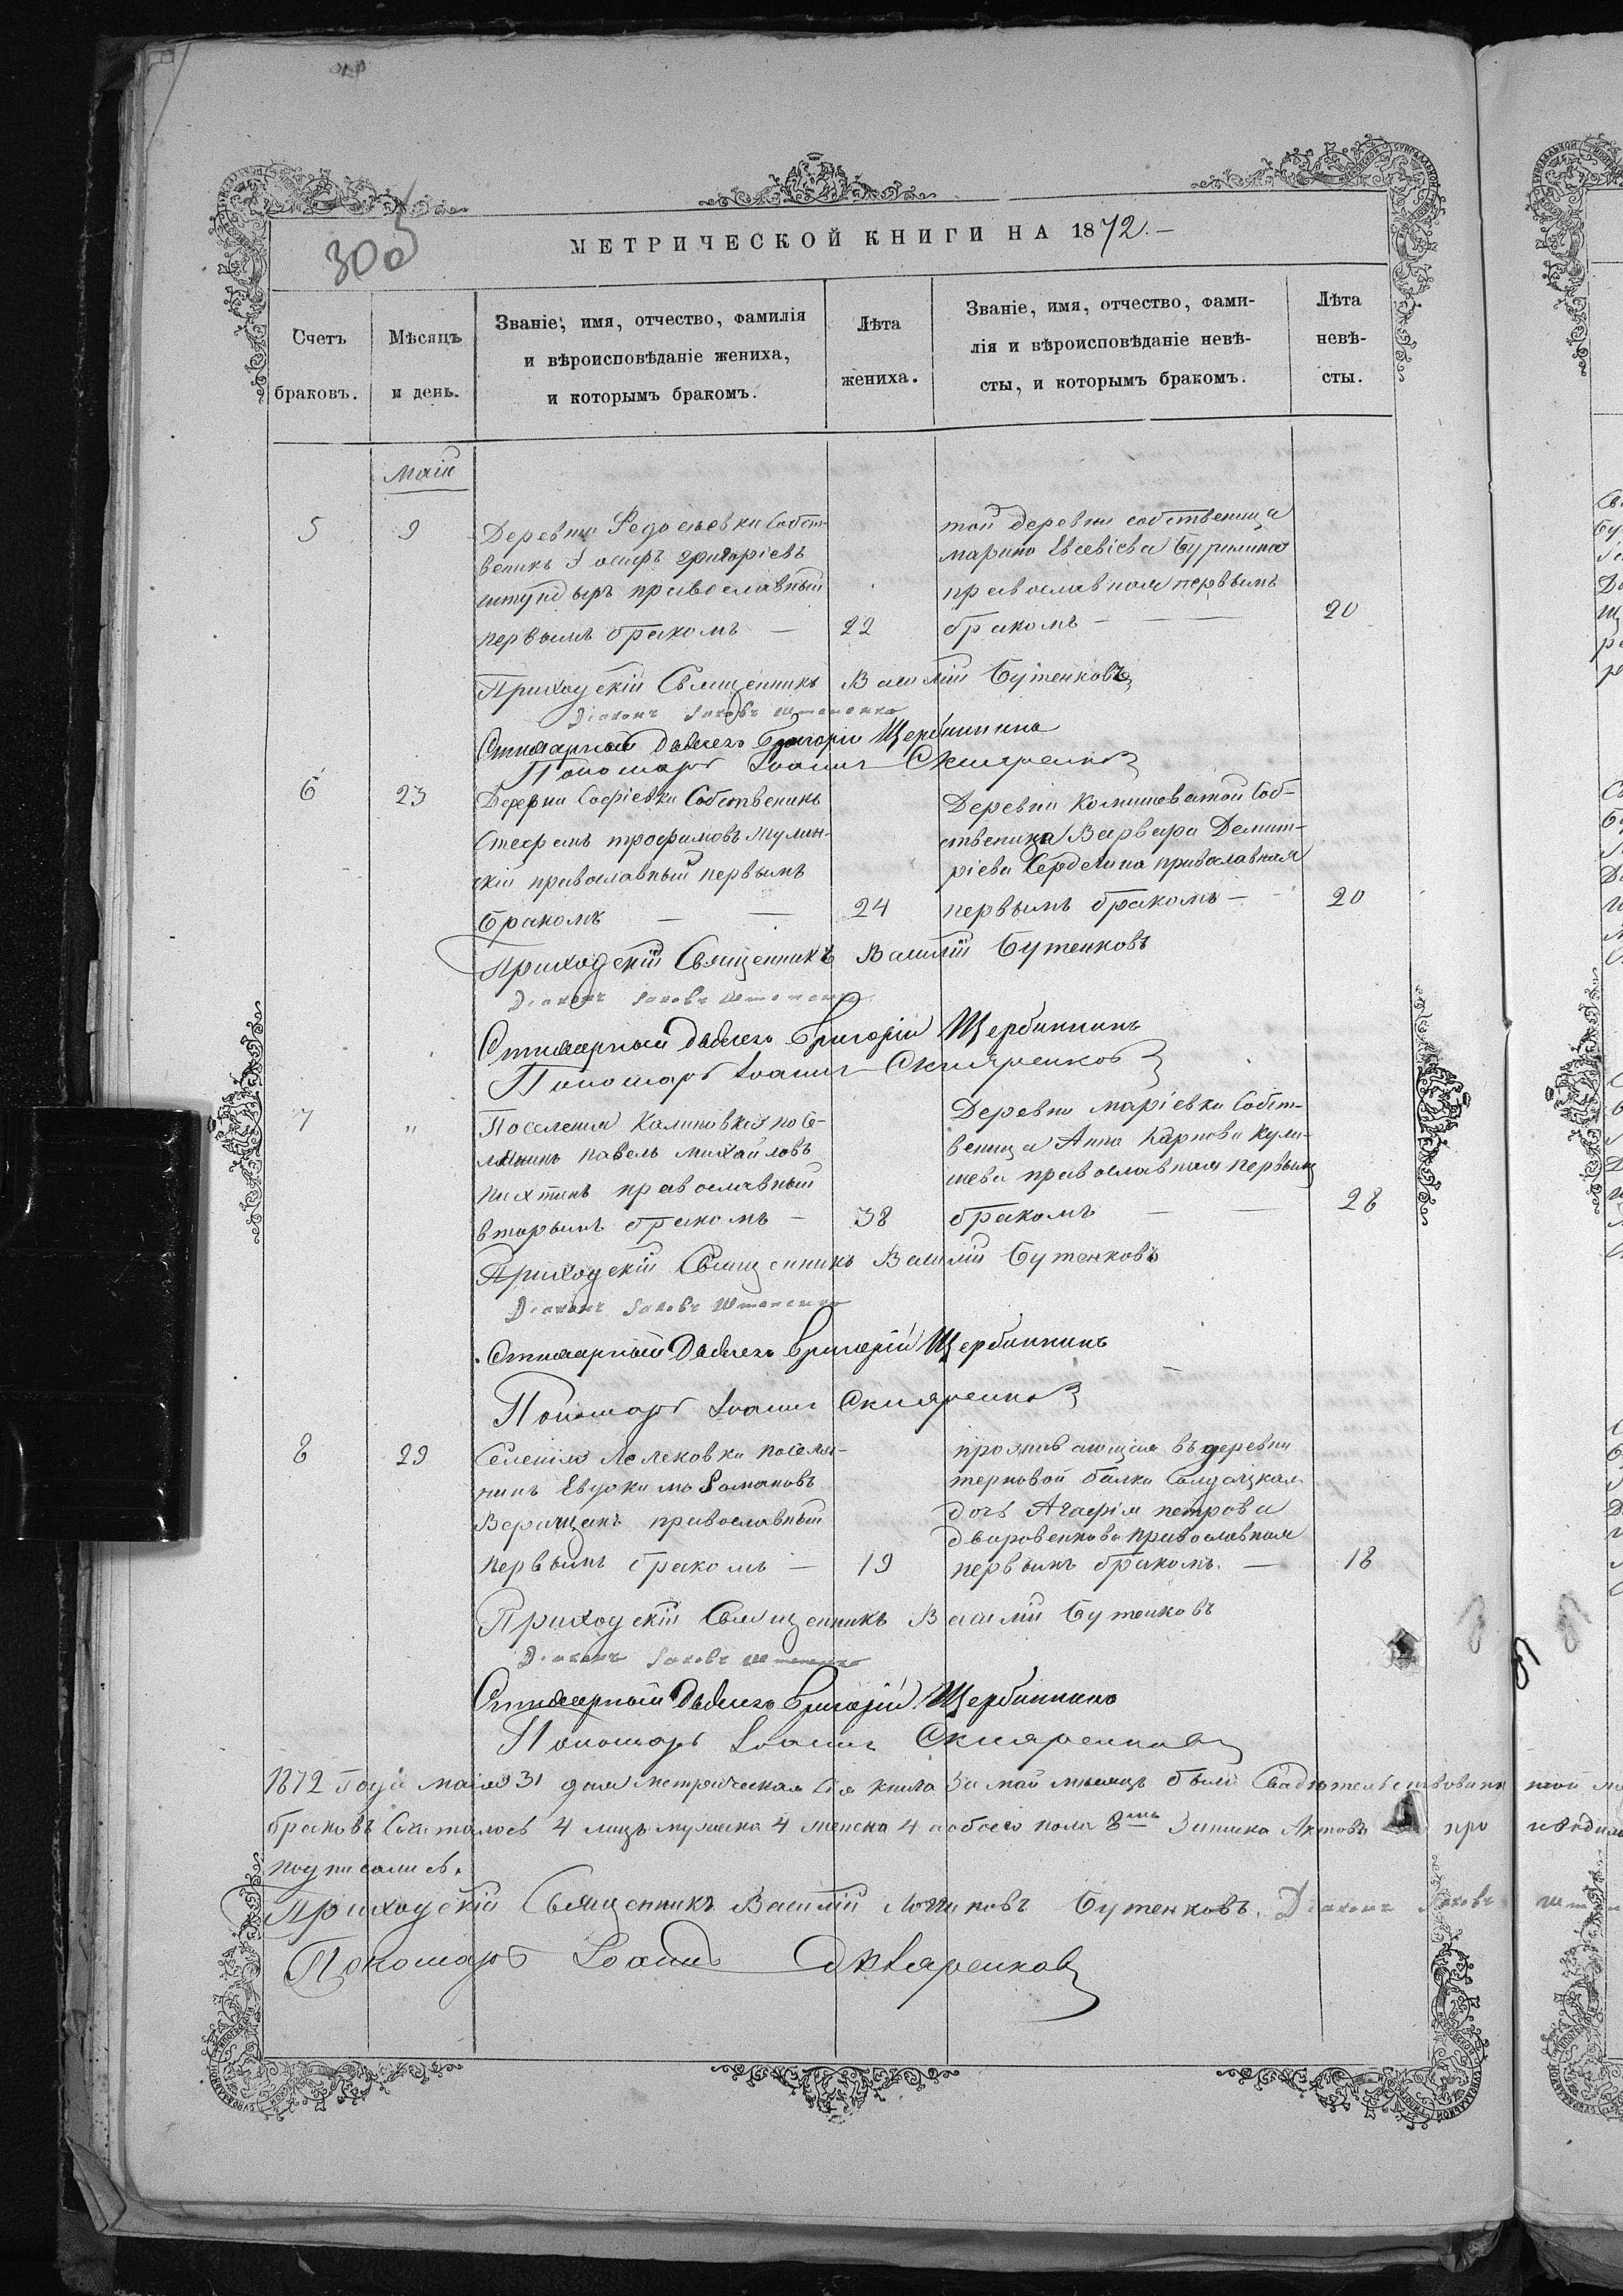 МЕТРИЧЕСКОЙ КНИГИ НА 1872.—
305
Счетъ браковъ.
Мѣсяцъ и день.
Званіе, имя, отчество, фамилія
и вѣроисповѣданіе жениха,
и которымъ бракомъ.
Лѣта жениха.
Званіе, имя, отчество, фами-
лія и вѣроисповѣданіе невѣ-
сты, и которымъ бракомъ.
Лѣта невѣ-
сты.
Маій
5 9
Деревни Федосьевки собст-
веникъ Іосифъ григоріевъ
православный
первымъ бракомъ — 22
той деревни собственица
марина Евсевіева
православная первымъ
бракомъ — — 20
Приходскій Священникъ Василій Бутенковъ
Діаконъ Іаковъ
Григорій Щербинина
Пономарь Іоаннъ Скляренков
6 23
Деревни Софіевки Собственикъ
Стефанъ трофимовъ Тулин-
скій православный первымъ
бракомъ — — 24
Деревни Комишеватой Соб-
ственица Варвара Демит-
ріева Сердекина православная
первымъ бракомъ — 20
Приходскій Священникъ Василій Бутенковъ
Діаконъ Іаковъ
Григорій Щербининъ
Пономарь Іоаннъ Скляренков
7 "
Поселенія Калиновки посе-
лянинъ павелъ михайловъ
пихтинъ православный
вторымъ бракомъ — 38
Деревни маріевки Собст-
веница Анна Карпова Кули-
шева православная первымъ
бракомъ — — 28
Приходскій Священникъ Василій Бутенковъ
Діаконъ Іаковъ
Григорій Щербининъ
Пономарь Іоаннъ Скляренков
8 29
Селенія Лелековки поселя-
нинъ Евдокимъ Романовъ
православный
первымъ бракомъ — 19
проживающая въ деревни
терновой балки Солдацкая
дочь Агафія петрова
дваровенкова православная
первымъ бракомъ. — 18
Приходскій Священникъ Василій Бутенковъ
Діаконъ Іаковъ
Григорій Щербинино
Пономарь Іоаннъ Скляренков
1872 Года маія 31 дня метрическая сія книга за май мѣсяцъ
браковъ считалось 4 лицъ мужеска 4 женска 4 а обоего пола 8
подписались.
Приходскій Священникъ Василій Логиновъ Бутенковъ. Діаконъ Іаковъ
Пономарь Іоаннъ Скляренков